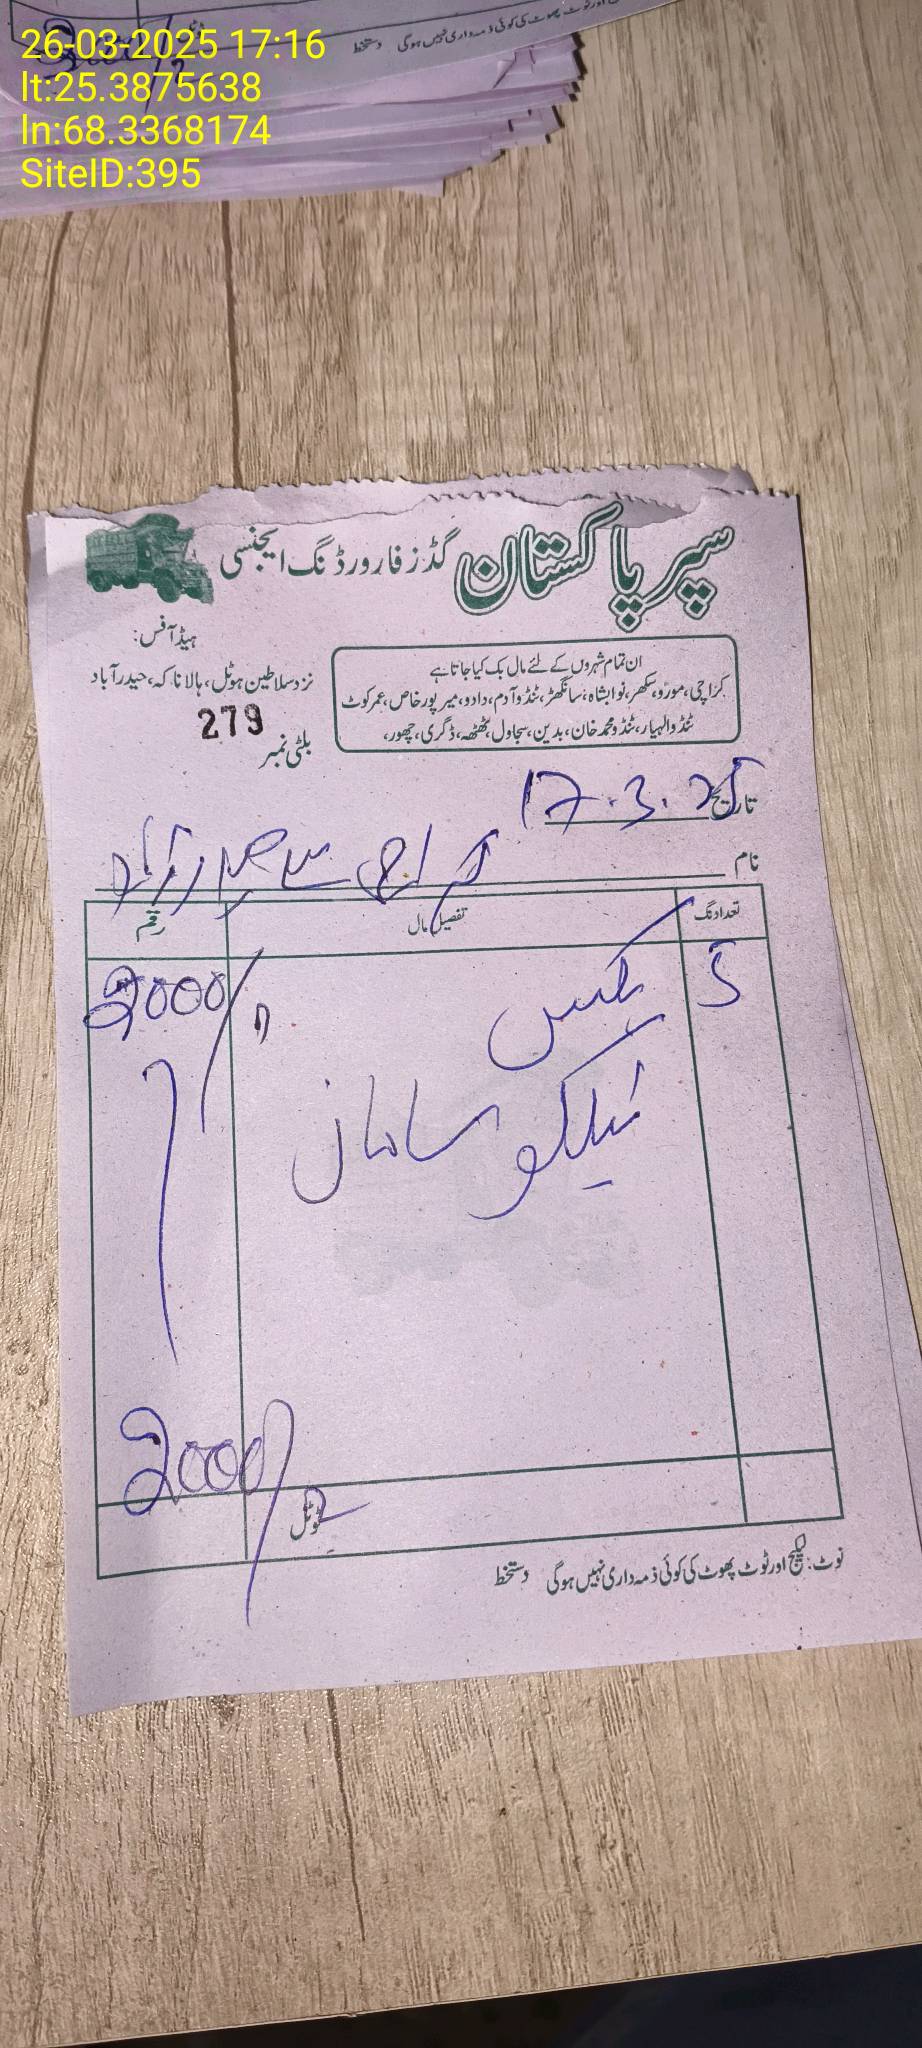 26-03-2025 17:16
lt:25.3875638
ln:68.3368174
SiteID:395
کوئی ذمہ داری نہیں ہوگی دستخط
سپر پاکستان گڈز فارورڈنگ ایجنسی
ہیڈ آفس:
نزد سلاطین ہوٹل، ہالا ناکہ، حیدرآباد
279
بلٹی نمبر
ان تمام شہروں کے لئے مال بک کیا جاتا ہے
کراچی، مورو، سکھر، نوابشاہ، سانگھڑ، ٹنڈو آدم، دادو، میرپور خاص، عمر کوٹ
ٹنڈو الہیار، ٹنڈو محمد خان، بدین، سجاول، ٹھٹھہ، ڈگری، چھور،
تاریخ 17.3.25
نام کراچی سے حیدرآباد
تعداد نگ تفصیل مال رقم
5 بکس 2000/
ٹیلکو سامان
ٹوٹل 2000/
نوٹ: لیکیج اور ٹوٹ پھوٹ کی کوئی ذمہ داری نہیں ہوگی دستخط